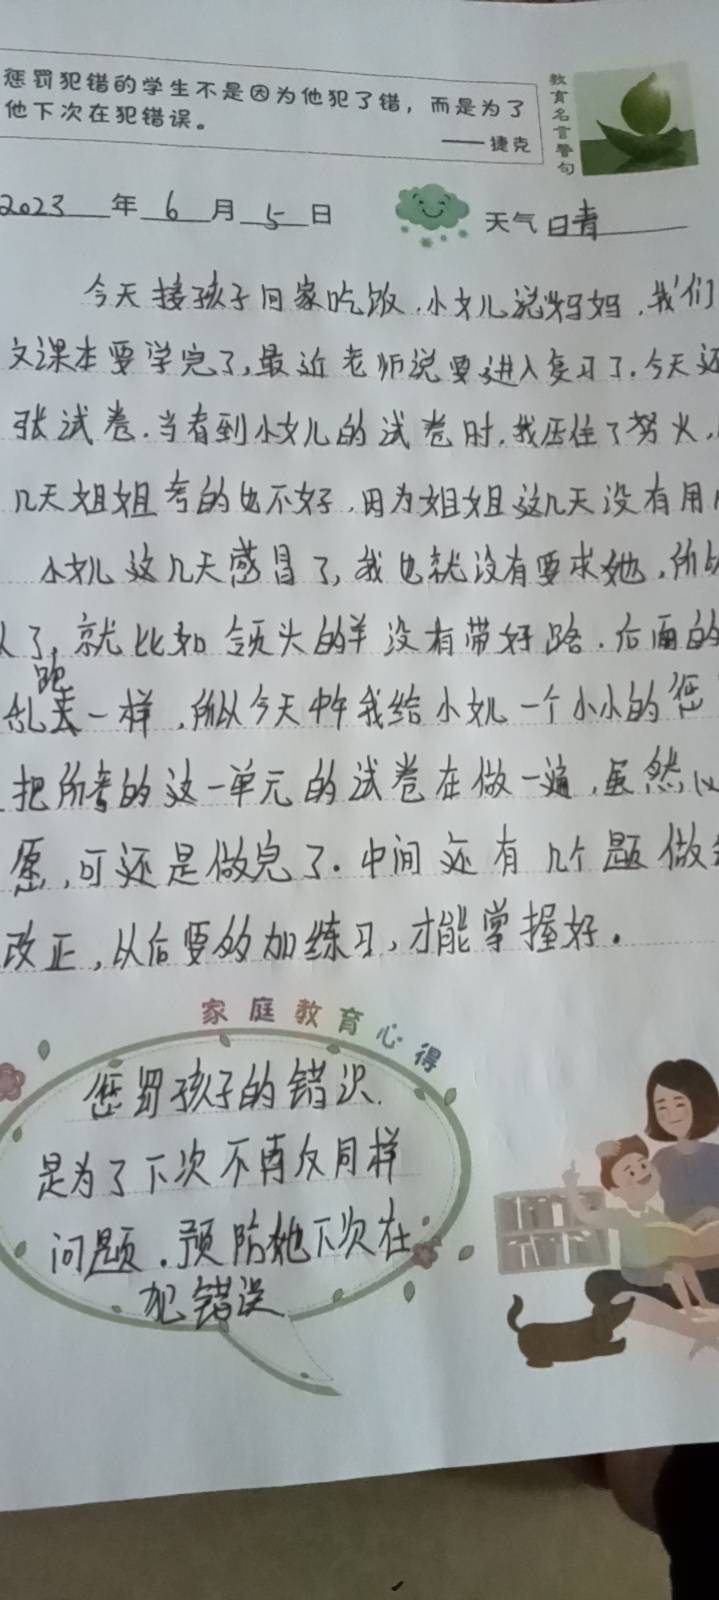 惩罚犯错的学生不是因为他犯了错，而是为了
他下次在犯错误。
——捷克
教育名言警句
2023年6月5日
天气 晴
今天接孩子回家吃饭，小女儿说妈妈，我们
文课本要学完了，最近老师说要进入复习了，今天还
张试卷，当看到小女儿的试卷时，我压住了努火，
几天姐姐考的也不好，因为姐姐这几天没有用
小女儿这几天感冒了，我也就没有要求她，所以
了，就比如领头的羊没有带好路，后面的
跑
乱一样，所以今天中午我给小女儿一个小小的惩
把所考的这一单元的试卷在做一遍，虽然心
愿，可还是做完了。中间还有几个题做
改正，以后要多加练习，才能掌握好。
家庭教育心得
惩罚孩子的错误，
是为了下次不再反同样
问题，预防她下次在
犯错误